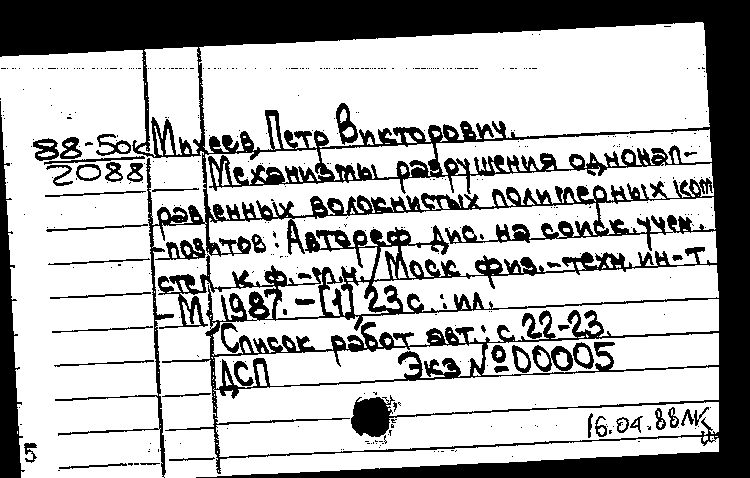 88-5ок
2088
Михеев, Петр Викторович.
Механизмы разрушения однонап-
равленных волокнистых полимерных ком
-позитов: Автореф. дис. на соиск. учен.
степ. к.ф.-м.н. / Моск. физ.-техн. ин-т.
-М., 1987. - [1], 23 с. : ил.
Список работ авт.: с. 22-23.
ДСП Экз № 00005
16.04.88
5